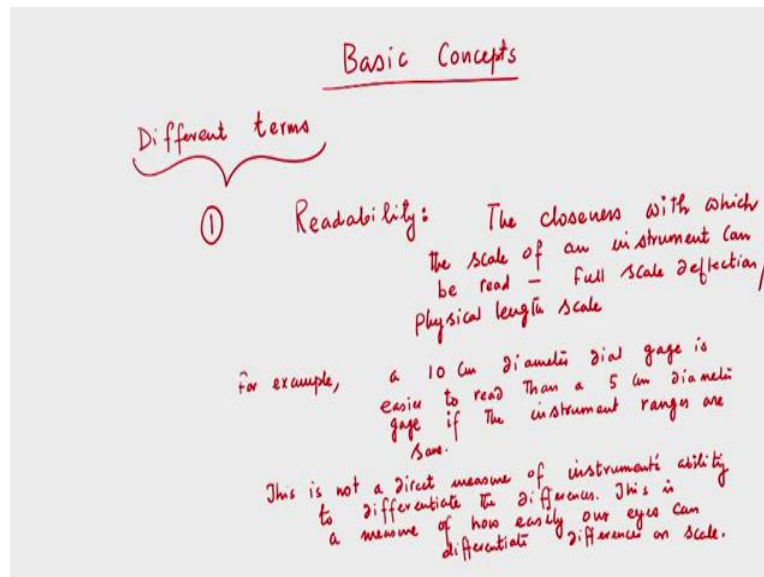 Basic Concepts
Different terms
① Readability: The closeness with which
the scale of an instrument can
be read – Full scale deflection/
physical length scale
For example, a 10 cm diameter dial gage is
easier to read than a 5 cm diameter
gage if the instrument ranges are
same.
This is not a direct measure of instrument's ability
to differentiate the differences. This is
a measure of how easily our eyes can
differentiate differences on scale.